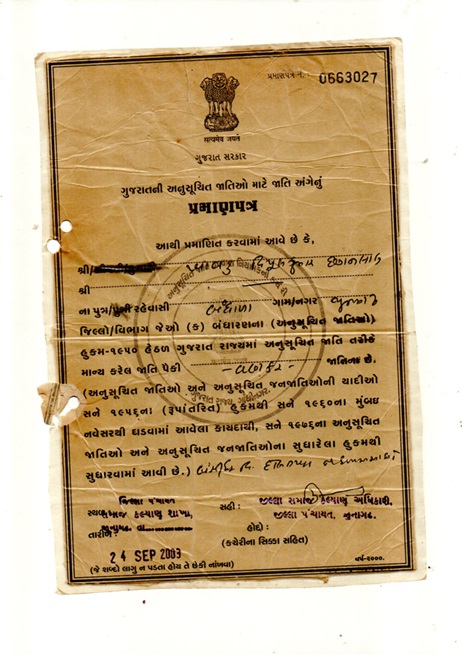 પ્રમાણપત્ર નં. 0663027
सत्यमेव जयते
ગુજરાત સરકાર
ગુજરાતની અનુસૂચિત જાતિઓ માટે જાતિ અંગેનું
પ્રમાણપત્ર
આથી પ્રમાણિત કરવામાં આવે છે કે,
શ્રી/
શ્રી
ના પુત્ર/પુત્રી રહેવાસી ગામ/નગર
જિલ્લો/વિભાગ જેઓ (ક) બંધારણના (અનુસૂચિત જાતિઓ)
હુકમ-૧૯૫૦ હેઠળ ગુજરાત રાજ્યમાં અનુસૂચિત જાતિ તરીકે
માન્ય કરેલ જાતિ પૈકી વણકર જાતિના છે.
(અનુસૂચિત જાતિઓ અને અનુસૂચિત જનજાતિઓની યાદીઓ
સને ૧૯૫૬ના (રૂપાંતરિત) હુકમથી સને ૧૯૬૦ના મુંબઇ
નવેસરથી ઘડવામાં આવેલા કાયદાથી, સને ૧૯૭૬ના અનુસૂચિત
જાતિઓ અને અનુસૂચિત જનજાતિઓના સુધારેલા હુકમથી
સુધારવામાં આવી છે.)
જિલ્લા પંચાયત
સ્થળ સમાજ કલ્યાણ શાખા,
જુનાગઢ.
તારીખ
24 SEP 2003
સહી :
જીલ્લા સમાજ કલ્યાણ અધિકારી,
જીલ્લા પંચાયત, જુનાગઢ.
હોદ્દો :
(કચેરીના સિક્કા સહિત)
(જે શબ્દો લાગુ ન પડતા હોય તે છેકી નાંખવા)
વર્ષ-૨૦૦૦.